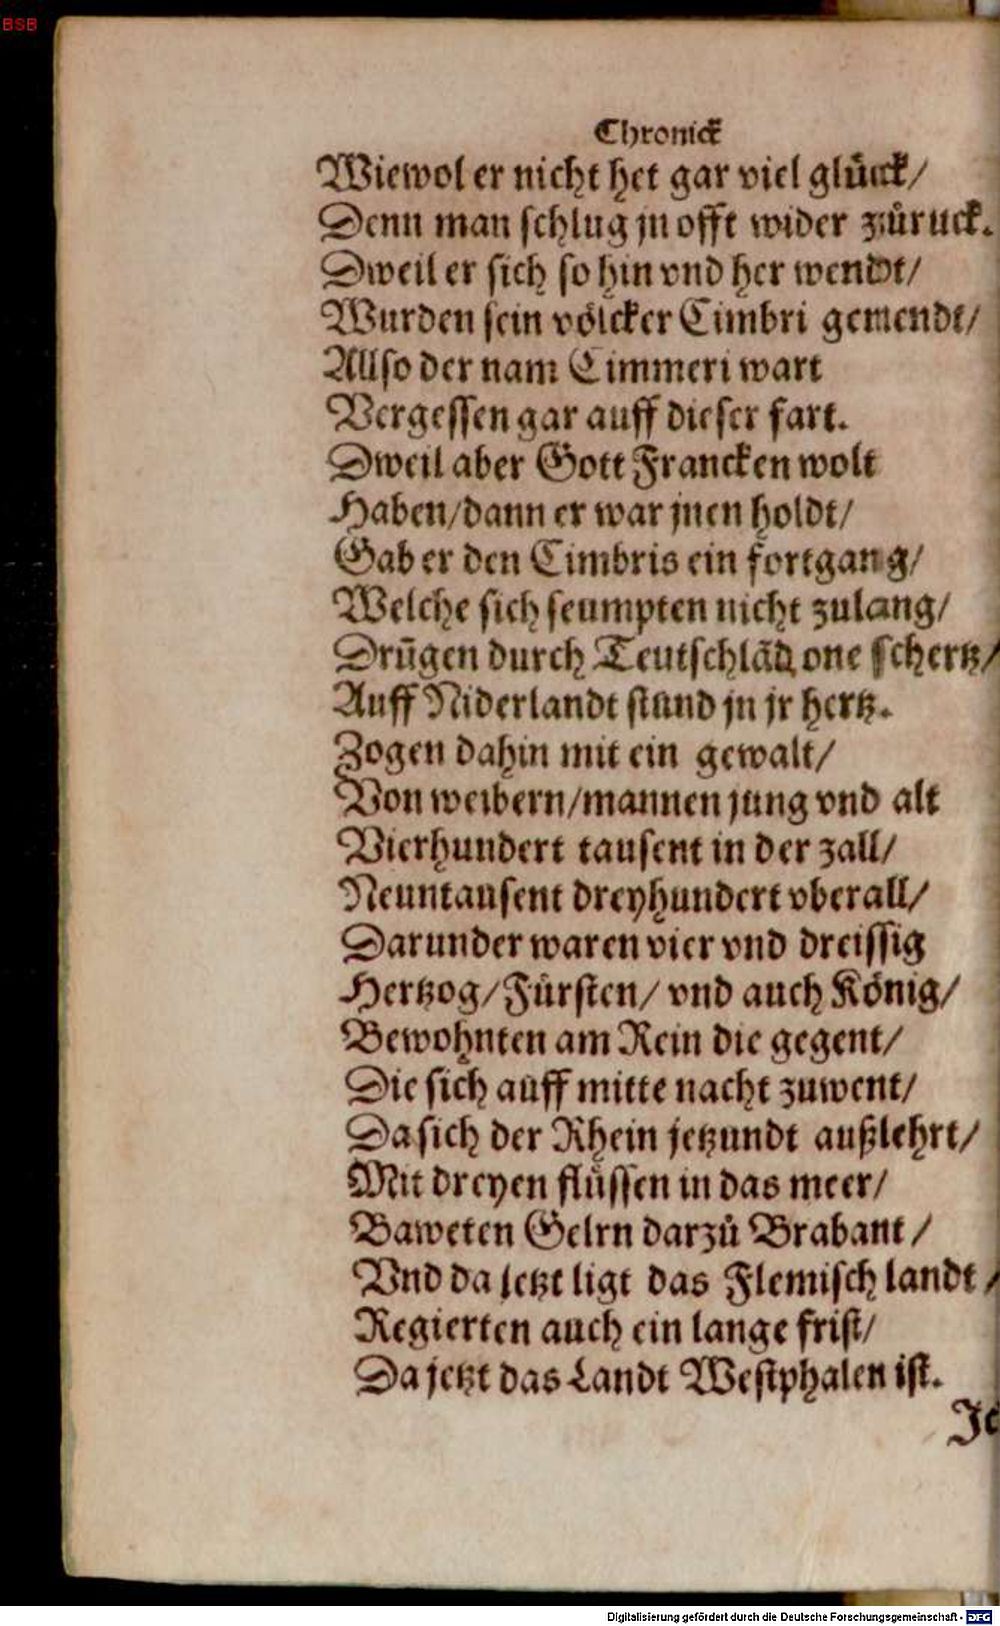 BSB
Chronick
Wiewol er nicht het gar viel glück/
Denn man schlug jn offt wider zůruck.
Dweil er sich so hin vnd her wendt/
Wurden sein völcker Cimbri genendt/
Allso der nam Cimmeri wart
Vergessen gar auff dieser fart.
Dweil aber Gott Francken wolt
Haben/dann er war jnen holdt/
Gab er den Cimbris ein fortgang/
Welche sich seumpten nicht zulang/
Drūgen durch Teutschlād one schertz/
Auff Niderlandt stund jn jr hertz.
Zogen dahin mit ein gewalt/
Von weibern/mannen jung vnd alt
Vierhundert tausent in der zall/
Neuntausent dreyhundert vberall/
Darunder waren vier vnd dreissig
Hertzog/Fürsten/ vnd auch König/
Bewohnten am Rein die gegent/
Die sich auff mitte nacht zuwent/
Da sich der Rhein jetzundt außlehrt/
Mit dreyen flüssen in das meer/
Baweten Gelrn darzů Brabant/
Vnd da jetzt ligt das Flemisch landt/
Regierten auch ein lange frist/
Da jetzt das Landt Westphalen ist.
Je
Digitalisierung gefördert durch die Deutsche Forschungsgemeinschaft - DFG